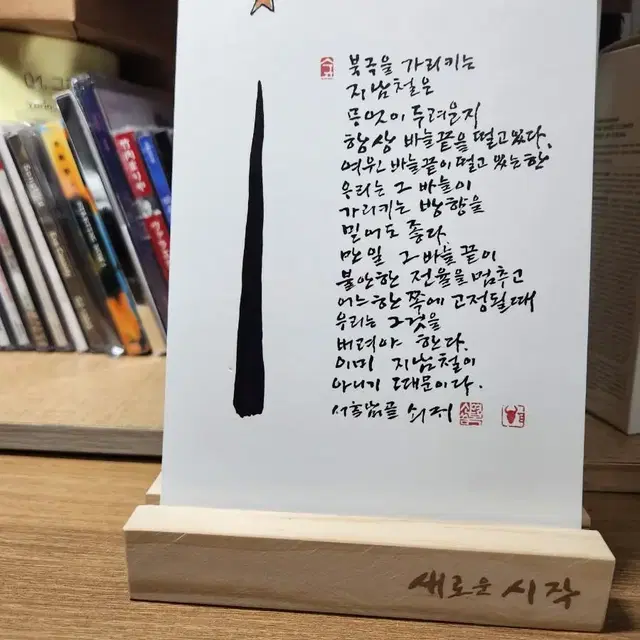 북극을 가리키는
지남철은
무엇이 두려운지
항상 바늘끝을 떨고있다.
여윈 바늘끝이 떨고 있는한
우리는 그 바늘이
가리키는 방향을
믿어도 좋다.
만일 그 바늘 끝이
불안한 전율을 멈추고
어느한 쪽에 고정될때
우리는 그것을
버려야 한다.
이미 지남철이
아니기 때문이다.
서울남골 쇠귀
새로운 시작